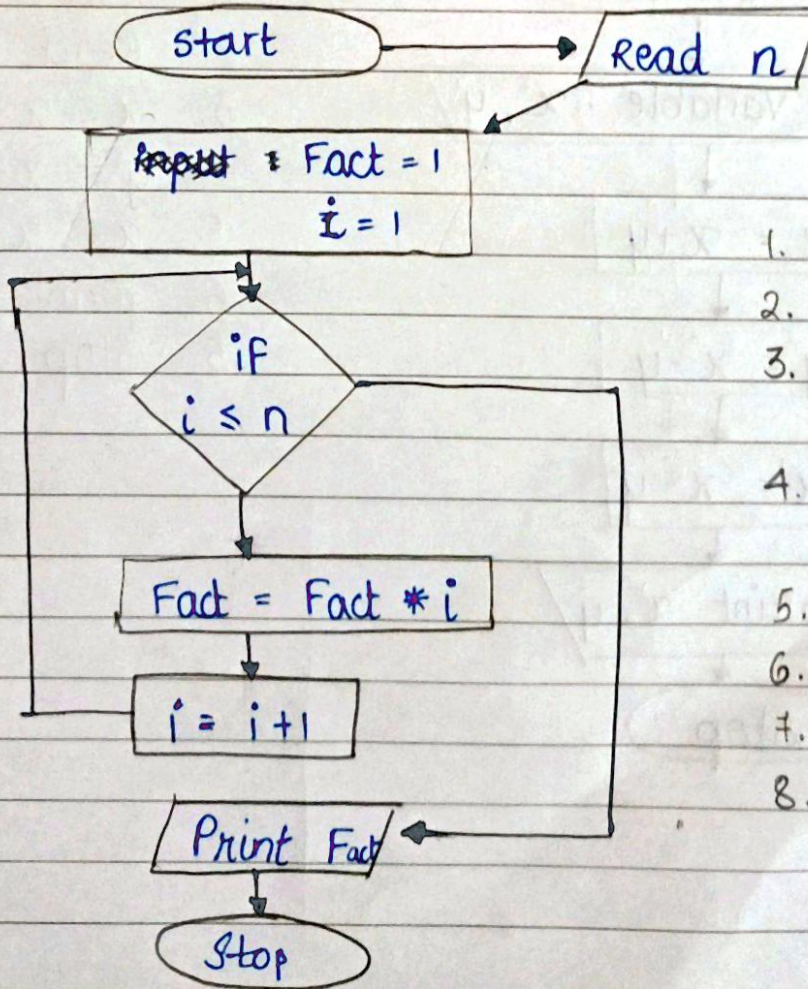 Start
Read n
Fact = 1
i = 1
if
i ≤ n
Fact = Fact * i
i = i+1
Print Fact
Stop
1.
2.
3.
4.
5.
6.
7.
8.